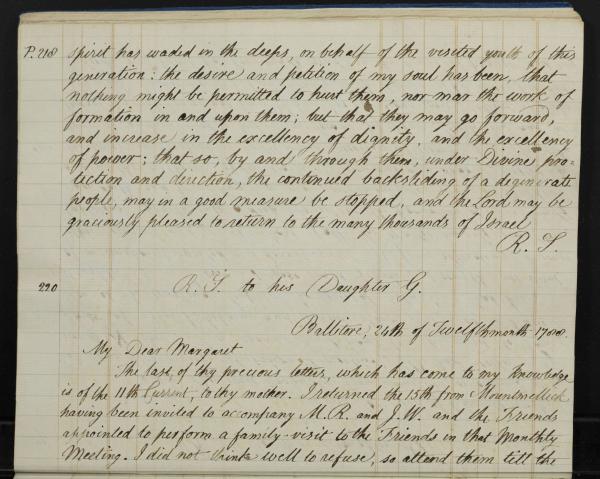 P. 218 spirit has waded in the deeps, on behalf of the visited youth of this
generation: the desire and petition of my soul has been, that
nothing might be permitted to hurt them, nor mar the work of
formation in and upon them; but that they may go forward,
and increase in the excellency of dignity, and the excellency
of power; that so, by and through them, under Divine pro-
tection and direction, the continued backsliding of a degenerate
people, may in a good measure be stopped, and the Lord may be
graciously pleased to return to the many thousands of Israel
R. S.
220 R. S. to his Daughter G.
Ballitore, 24th of Twelfthmonth 1788.
My Dear Margaret
The last of thy precious letters, which has come to my knowledge
is of the 11th Current, to thy mother. I returned the 15th from Mountmellick
having been invited to accompany M. R. and J. W. and the Friends
appointed to perform a family-visit to the Friends in that Monthly
Meeting. I did not think well to refuse, so attend them till the